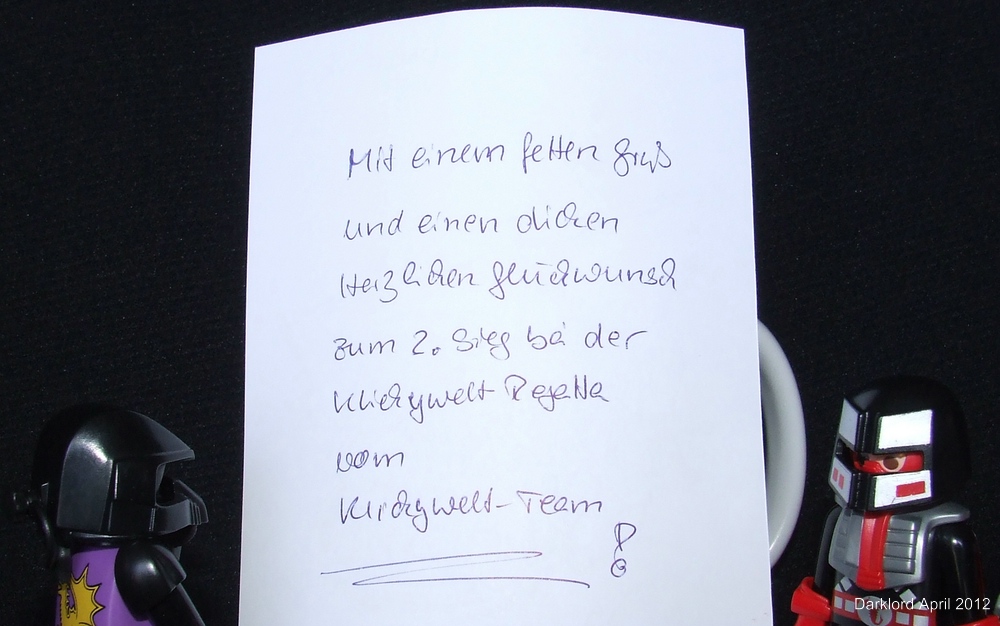 Mit einem fetten Gruß
und einen dicken
Herzlichen Glückwunsch
zum 2. Sieg bei der
Klickywelt-Regatta
vom
Klickywelt-Team
!
Darklord April 2012